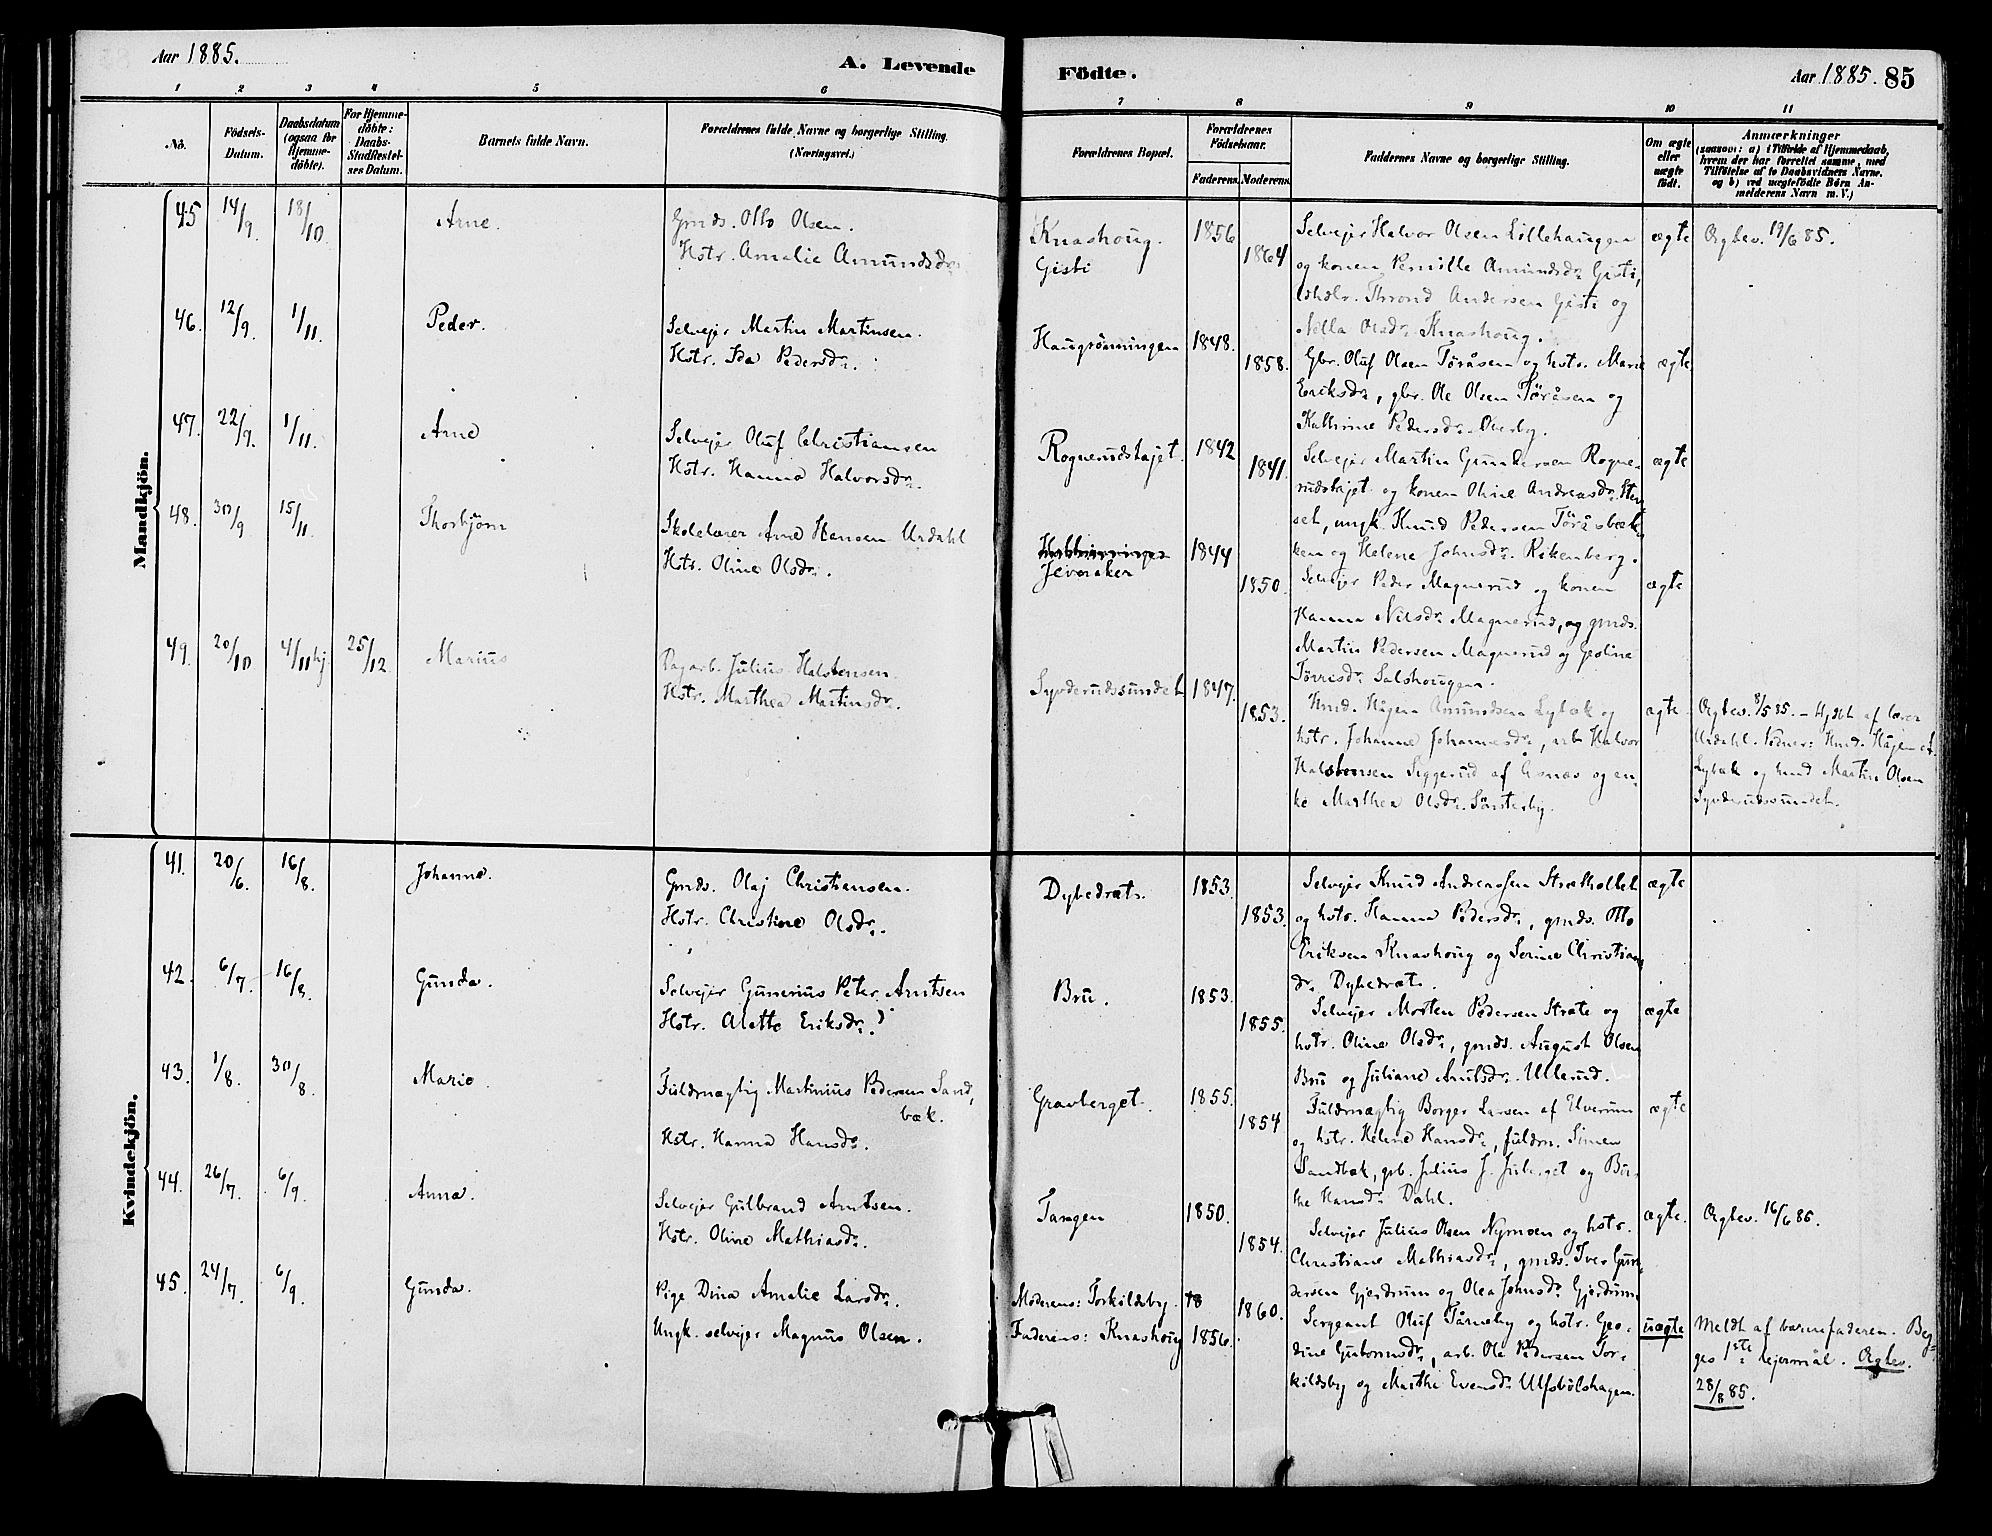 Aar 1885.
A. Levende
Födte.
Aar 1885. 85
1 2 3 4 5 6 7 8 9 10 11
No.
Födsels-Datum.
Daabsdatum (ogsaa for Hjemme-döbte).
For Hjemme-döbte: Daabs-Stadfæstel-ses Datum.
Barnets fulde Navn.
Forældrenes fulde Navne og borgerlige Stilling. (Næringsvei.)
Forældrenes Bopæl.
Forældrenes Födselsaar.
Faderens. Moderens.
Faddernes Navne og borgerlige Stilling.
Om ægte eller uægte födt.
Anmærkninger
(saasom: a) i Tilfælde af Hjemmedaab, hvem der har forrettet samme, med Tilföielse af to Daabsvidners Navne. og b) ved uægtefödte Börn An-melderens Navn m. V.)
Mandkjön.
45 14/9. 18/10 Arne. Gmds. Otto Olsen.
Hstr. Amalie Amundsdr.
Knashoug.
Gisti
1856
1864
Selvejer Halvor Olsen Lillehaugen
og konen Pernille Amundsdr. Gisti,
Thrond Andersen Gisti og
Nilla Olsdr. Knashoug.
ægte Agbev. 19/6 85.
46. 12/9. 1/11. Peder. Selvejer Martin Martinsen.
Hstr. Ida Pedersdr.
Haugrönningen 1848.
1858.
Gbr. Oluf Olsen Töråsen og hstr. Marie
Eriksdr., gbr. Ole Olsen Töråsen og
Kathrine Pedersdr. Overby.
ægte
47. 22/9. 1/11. Arne Selvejer Oluf Christiansen
Hstr. Hanna Halvorsdr.
Rognerudshajet. 1842
1841.
Selvejer Martin Gundersen Rogne-
rudshajet og konen Oline Andreasdr.
set, ungk. Knud Pedersen Töråsbæk
ken og Helene Johnsdr. Rikenberg.
ægte
48. 30/9 15/11 Thorbjörn Skolelærer Arne Hansen Urdahl
Hstr. Oline Olsdr.
Jeveraker
1844
1850.
Selvejer Peder Magnerud og konen
Hanna Nilsdr. Magnerud, og gmds.
Martin Pedersen Magnerud og Gesline
Törrisdr. Salshougen.
ægte
49. 20/10 4/11 hj 25/12 Marius Dagarb. Julius Halstensen.
Hstr. Marthea Martinsdr.
Syverudssundet 1847.
1853.
Hmd. Hågen Amundsen Lybæk og
hstr. Johanne Johannesdr., arb. Halvor
Halstensen Seggerud af Åsnæs og en-
ke Marthea Olsdr. Sörsterby.
ægte
Agbev. 8/5 85. - Hjdbt af lærer
Urdahl. Vidner: Hmd. Hågen A.
Lybæk og hmd Martin Olsen
Syverudssundet.
Kvindekjön.
41. 20/6. 16/8. Johanne. Gmds. Olaj Christiansen.
Hstr. Christine Olsdr.
Dybedræt. 1853.
1853.
Selvejer Knud Andreassen Strætkollet
og hstr. Hanna Pedersdr., gmds. Otto
Eriksen Knashoug og Serine Christian
dr. Dybedræt.
ægte
42. 6/7. 16/8. Gunda. Selvejer Gunerius Peter Arntsen
Hstr. Alette Eriksdr.
Bru. 1853.
1855.
Selvejer Morten Pedersen Stræte og
hstr. Oline Olsdr., gmds. August Olsen
Bru og Juliane Arntsdr. Ullerud.
ægte
43. 1/8. 30/8. Marie. Fuldmægtig Martinius Pedersen Sand,
bæk.
Hstr. Hanna Hansdr.
Gravberget. 1855.
1854
Fuldmægtig Borger Larsen af Elverum
og hstr. Helene Hansdr., fuldm. Simen
Sandbæk, grb. Julius J. Juberget og Bir-
the Hansdr. Dahl.
ægte
44. 26/7. 6/9. Anna. Selvejer Gulbrand Arntsen.
Hstr. Oline Mathiasdr.
Tangen 1850.
1854.
Selvejer Julius Olsen Nymoen og hstr.
Christiane Mathiasdr., gmds. Iver Gun-
dersen Gjerdrum og Olea Johnsdr. Gjerdrum
ægte. Agbev. 16/6 85.
45. 24/7. 6/9. Gunda. Pige Dina Amalie Larsdr.
Ungk. selvejer Magnus Olsen.
Moderens: Torkildsby.
Faderens: Knashoug
1860.
1856.
Sergeant Oluf Tårneby og hstr. Geo-
dine Gutormsdr., arb. Ole Pedersen Tor-
kildsby og Marthe Evensdr. Ulfsbölshagen.
uægte Meldt af barnefaderen. Beg-
ges 1ste lejermål. Agbev.
28/8 85.